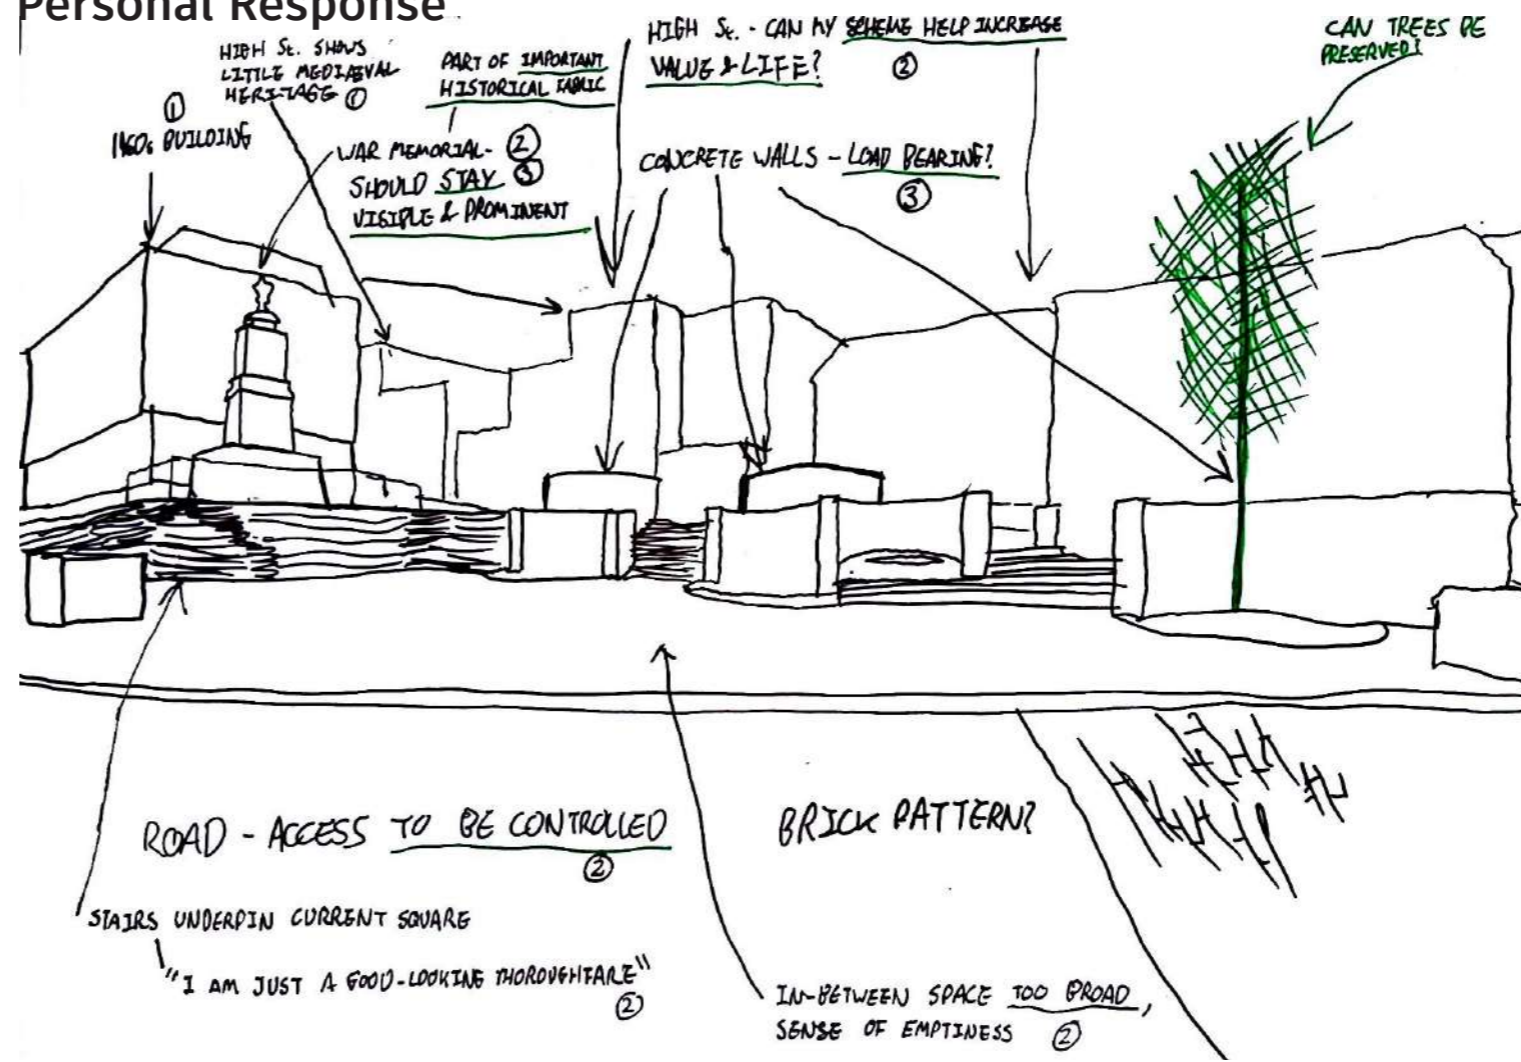 Personal Response
HIGH St. SHOWS
LITTLE MEDIAEVAL
HERITAGE ①
①
1960s BUILDING
PART OF IMPORTANT
HISTORICAL FABRIC
WAR MEMORIAL- ②
SHOULD STAY ③
VISIBLE & PROMINENT
HIGH St. - CAN MY SCHEME HELP INCREASE
VALUE & LIFE? ②
CONCRETE WALLS - LOAD BEARING?
③
CAN TREES BE
PRESERVED?
ROAD - ACCESS TO BE CONTROLLED
②
BRICK PATTERN?
STAIRS UNDERPIN CURRENT SQUARE
"I AM JUST A GOOD-LOOKING THOROUGHFARE"
②
IN-BETWEEN SPACE TOO BROAD,
SENSE OF EMPTINESS ②